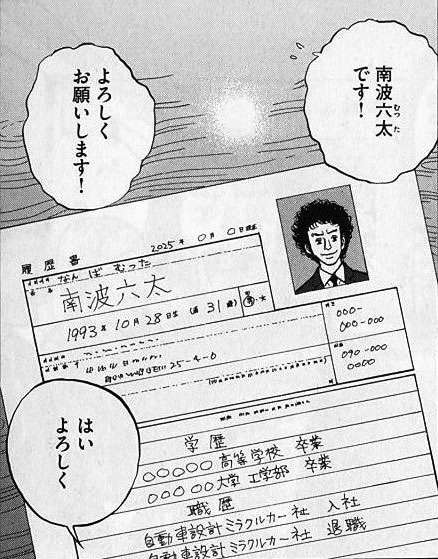 南波六太
むった
です!
よろしく
お願いします!
履歴書
2025年0月0日現在
なんば むった
南波六太
1993年10月28日生(満31歳)
男・女
25-4-0
000-
000-000
090-000
0000
学歴
〇〇〇〇〇高等学校 卒業
〇〇〇〇〇大学 工学部 卒業
職歴
自動車設計ミラクルカー社 入社
自動車設計ミラクルカー社 退職
はい
よろしく